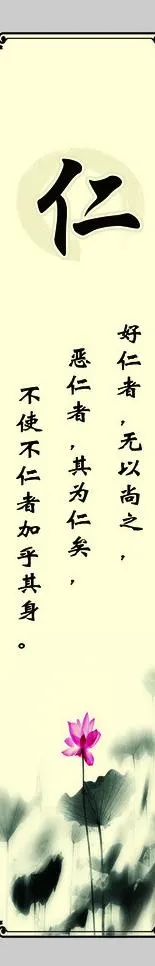 仁
好仁者，无以尚之，
恶仁者，其为仁矣，
不使不仁者加乎其身。